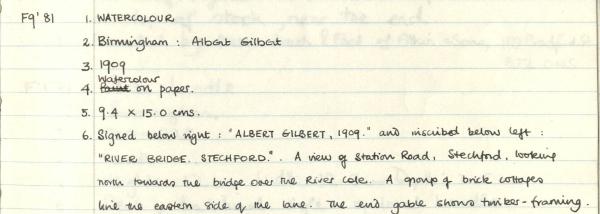 F9'81 1. WATERCOLOUR
2. Birmingham : Albert Gilbert
3. 1909
Watercolour
4. Paint on paper.
5. 9.4 x 15.0 cms.
6. Signed below right : "ALBERT GILBERT, 1909." and inscribed below left :
"RIVER BRIDGE. STECHFORD.". A view of Station Road, Stechford, looking
north towards the bridge over the River Cole. A group of brick cottages
line the eastern side of the lane. The end gable shows timber-framing.